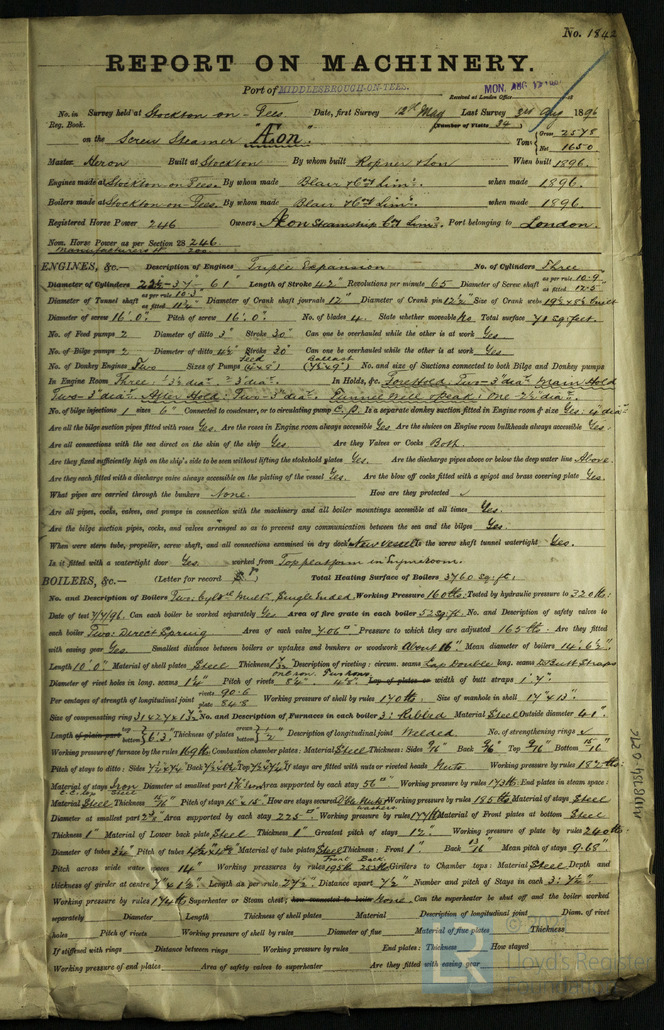 No. 1842
REPORT ON MACHINERY.
Port of MIDDLESBROUGH-ON-TEES.
Received at London Office MON. AUG 17 18
No. in Survey held at Stockton-on-Tees Date, first Survey 12th May Last Survey 3rd Aug 1896
Reg. Book. (Number of Visits 34)
on the Screw Steamer "Æon" Tons Gross 2578 Net 1650
Master Heron Built at Stockton By whom built Ropner & Son When built 1896.
Engines made at Stockton-on-Tees. By whom made Blair & Co. Lim. when made 1896.
Boilers made at Stockton-on-Tees. By whom made Blair & Co. Lim. when made 1896.
Registered Horse Power 246 Owners Æon Steamship Co. Lim. Port belonging to London.
Nom. Horse Power as per Section 28 246.
ENGINES, &c.— Description of Engines Triple Expansion No. of Cylinders Three
Diameter of Cylinders 22½-37-61 Length of Stroke 42" Revolutions per minute 65 Diameter of Screw shaft as per rule 10.9 as fitted 12.5"
Diameter of Tunnel shaft as per rule 10.3" as fitted 11¼" Diameter of Crank shaft journals 12" Diameter of Crank pin 12½" Size of Crank webs
Diameter of screw 16'.0" Pitch of screw 16'.0" No. of blades 4. State whether moveable No. Total surface 70 sq. feet.
No. of Feed pumps 2 Diameter of ditto 3" Stroke 30" Can one be overhauled while the other is at work Yes
No. of Bilge pumps 2 Diameter of ditto 4½" Stroke 30" Can one be overhauled while the other is at work Yes
No. of Donkey Engines Two Sizes of Pumps Feed Ballast No. and size of Suctions connected to both Bilge and Donkey pumps
In Engine Room Three: 3½ dia. 3" dia. In Holds, &c. Fore Hold, Two-3" dia. Main Hold
Two-3" dia. After Hold: Two-3" dia. Tunnel Well One-2½" dia.
No. of bilge injections 1 sizes 6" Connected to condenser, or to circulating pump C.P. Is a separate donkey suction fitted in Engine room & size Yes: 4" dia.
Are all the bilge suction pipes fitted with roses Yes. Are the roses in Engine room always accessible Yes Are the sluices on Engine room bulkheads always accessible Yes.
Are all connections with the sea direct on the skin of the ship Yes Are they Valves or Cocks Both.
Are they fixed sufficiently high on the ship's side to be seen without lifting the stokehold plates Yes. Are the discharge pipes above or below the deep water line Above.
Are they each fitted with a discharge valve always accessible on the plating of the vessel Yes. Are the blow off cocks fitted with a spigot and brass covering plate Yes.
What pipes are carried through the bunkers None. How are they protected ✓
Are all pipes, cocks, valves, and pumps in connection with the machinery and all boiler mountings accessible at all times Yes.
Are the bilge suction pipes, cocks, and valves arranged so as to prevent any communication between the sea and the bilges Yes.
When were stern tube, propeller, screw shaft, and all connections examined in dry dock New vessel Is the screw shaft tunnel watertight Yes.
Is it fitted with a watertight door Yes worked from Top platform in Eng. room.
BOILERS, &c.— (Letter for record S) Total Heating Surface of Boilers 3760 sq. ft.
No. and Description of Boilers Two: Cyl. Mult. Single Ended Working Pressure 160 lbs Tested by hydraulic pressure to 320 lbs:
Date of test 7/7/96. Can each boiler be worked separately Yes Area of fire grate in each boiler 52 sq. ft. No. and Description of safety valves to
each boiler Two: Direct Spring Area of each valve 7.06" Pressure to which they are adjusted 165 lbs. Are they fitted
with easing gear Yes. Smallest distance between boilers or uptakes and bunkers or woodwork About 16" Mean diameter of boilers 14'. 6½".
Length 10'.0" Material of shell plates Steel Thickness Description of riveting: circum. seams Lap Double long. seams Butt Straps
Diameter of rivet holes in long. seams 1¼" Pitch of rivets 8¼" width of butt straps 1'.7".
Per centages of strength of longitudinal joint rivets 90.6 plate 84.8 Working pressure of shell by rules 170 lbs. Size of manhole in shell 17" x 13".
Size of compensating ring 31 x 27 x No. and Description of Furnaces in each boiler 3: Ribbed Material Steel Outside diameter 41".
Length top bottom 6'.3" Thickness of plates crown bottom ½" Description of longitudinal joint Welded No. of strengthening rings ✓
Working pressure of furnace by the rules 169 lbs Combustion chamber plates: Material Steel Thickness: Sides 9/16" Back 9/16" Top 9/16" Bottom 15/16"
Pitch of stays to ditto: Sides 7½ x 7½ Back Top If stays are fitted with nuts or riveted heads Nuts Working pressure by rules 182 lbs:
Material of stays Iron Diameter at smallest part Area supported by each stay 56" Working pressure by rules 173 lbs: End plates in steam space:
Material Steel Thickness 15/16" Pitch of stays 15 x 15" How are stays secured Dble Nuts & washers Working pressure by rules 185 lbs Material of stays Steel
Diameter at smallest part Area supported by each stay 225" Working pressure by rules Material of Front plates at bottom Steel
Thickness 1" Material of Lower back plate Steel Thickness 1" Greatest pitch of stays 12" Working pressure of plate by rules 240 lbs
Diameter of tubes 3¼" Pitch of tubes 4½" x 4½" Material of tube plates Steel Thickness: Front 1" Back 13/16" Mean pitch of stays 9.68"
Pitch across wide water spaces 14" Working pressures by rules Front Back Girders to Chamber tops: Material Steel Depth and
thickness of girder at centre 7" x 1½" Length as per rule 27½" Distance apart 7½" Number and pitch of Stays in each 3: 7½".
Working pressure by rules 174 lbs Superheater or Steam chest; how connected to boiler None. Can the superheater be shut off and the boiler worked
separately Diameter Length Thickness of shell plates Material Description of longitudinal joint Diam. of rivet
holes Pitch of rivets Working pressure of shell by rules Diameter of flue Material of flue plates Thickness
If stiffened with rings Distance between rings Working pressure by rules End plates: Thickness How stayed
Working pressure of end plates Area of safety valves to superheater Are they fitted with easing gear
© 2021
Lloyd's Register
Foundation